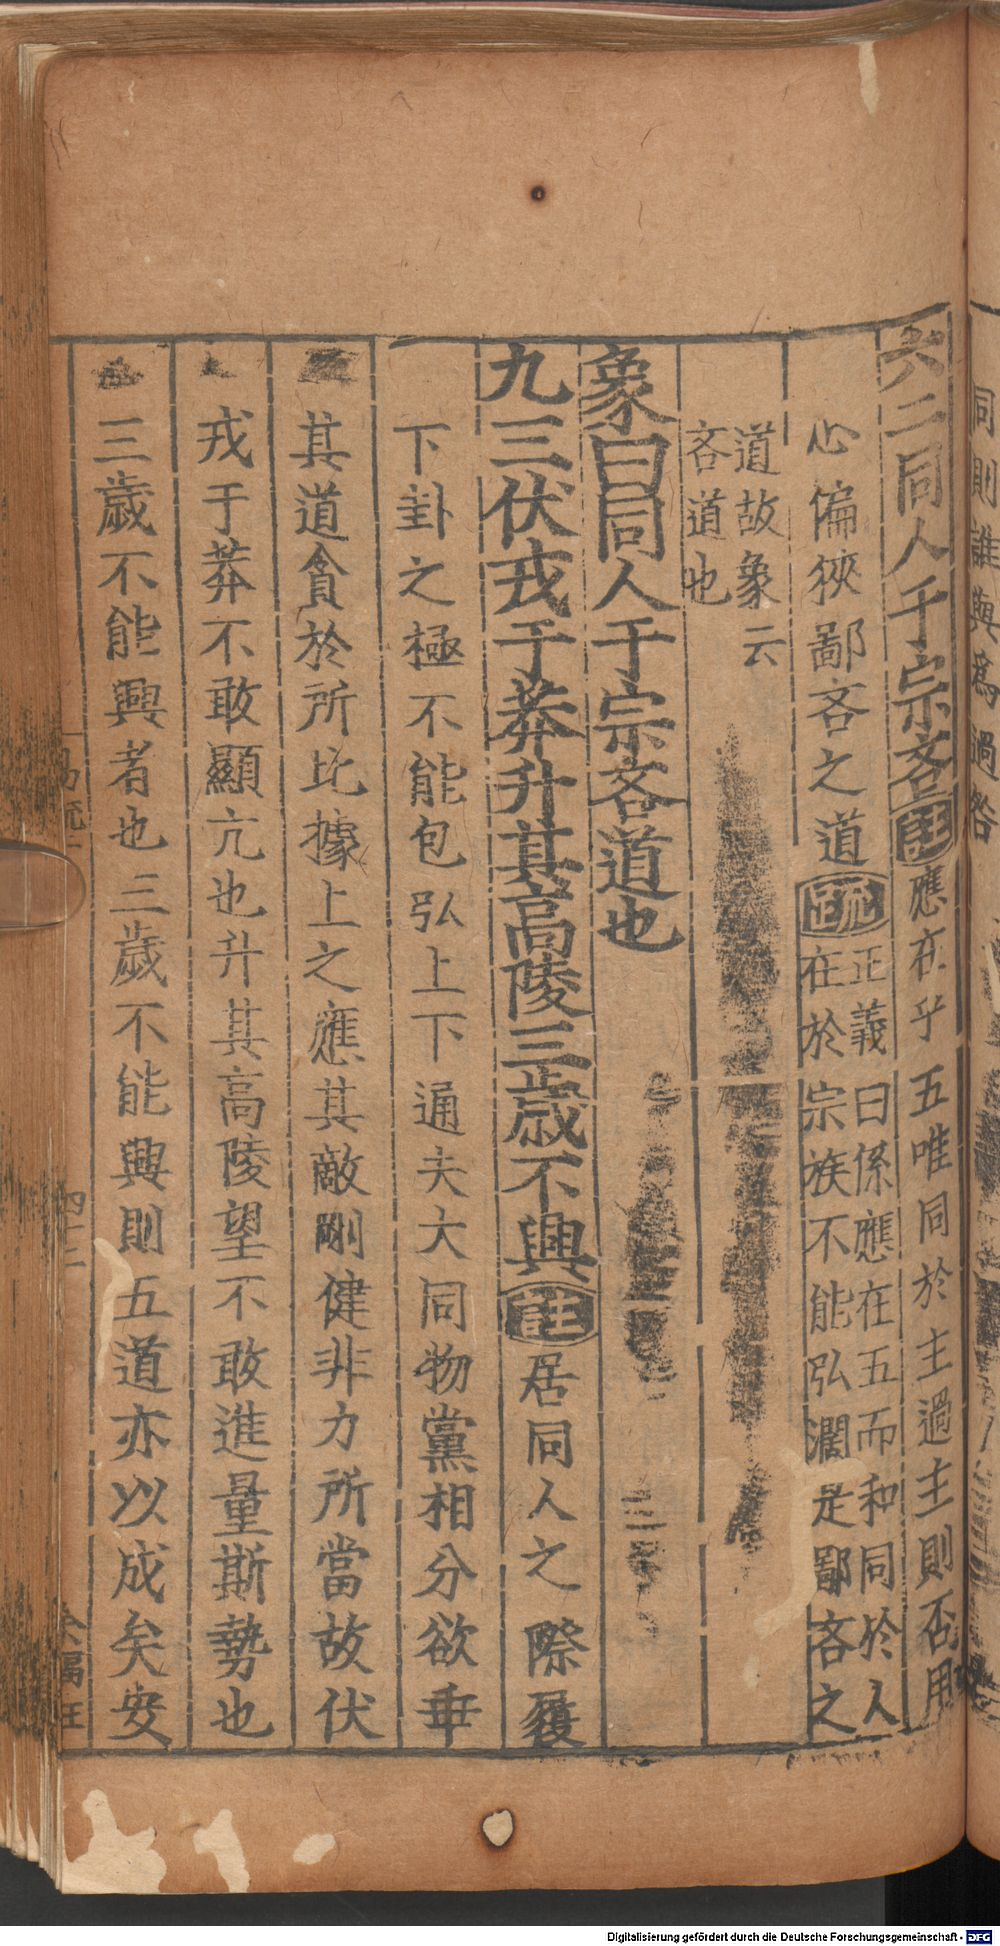 同則誰與爲過咎
六二同人于宗吝註應在乎五唯同於主過主則否用
心偏狹鄙吝之道疏正義曰係應在五而和同於人
在於宗族不能弘濶是鄙吝之
道故象云
吝道也
象曰同人于宗吝道也
九三伏戎于莽升其高陵三歲不興註居同人之際履
下卦之極不能包弘上下通夫大同物黨相分欲乖
其道貪於所比據上之應其敵剛健非力所當故伏
戎于莽不敢顯亢也升其高陵望不敢進量斯勢也
三歲不能興者也三歲不能興則五道亦以成矣安
易疏
四十二
Digitalisierung gefördert durch die Deutsche Forschungsgemeinschaft - DFG